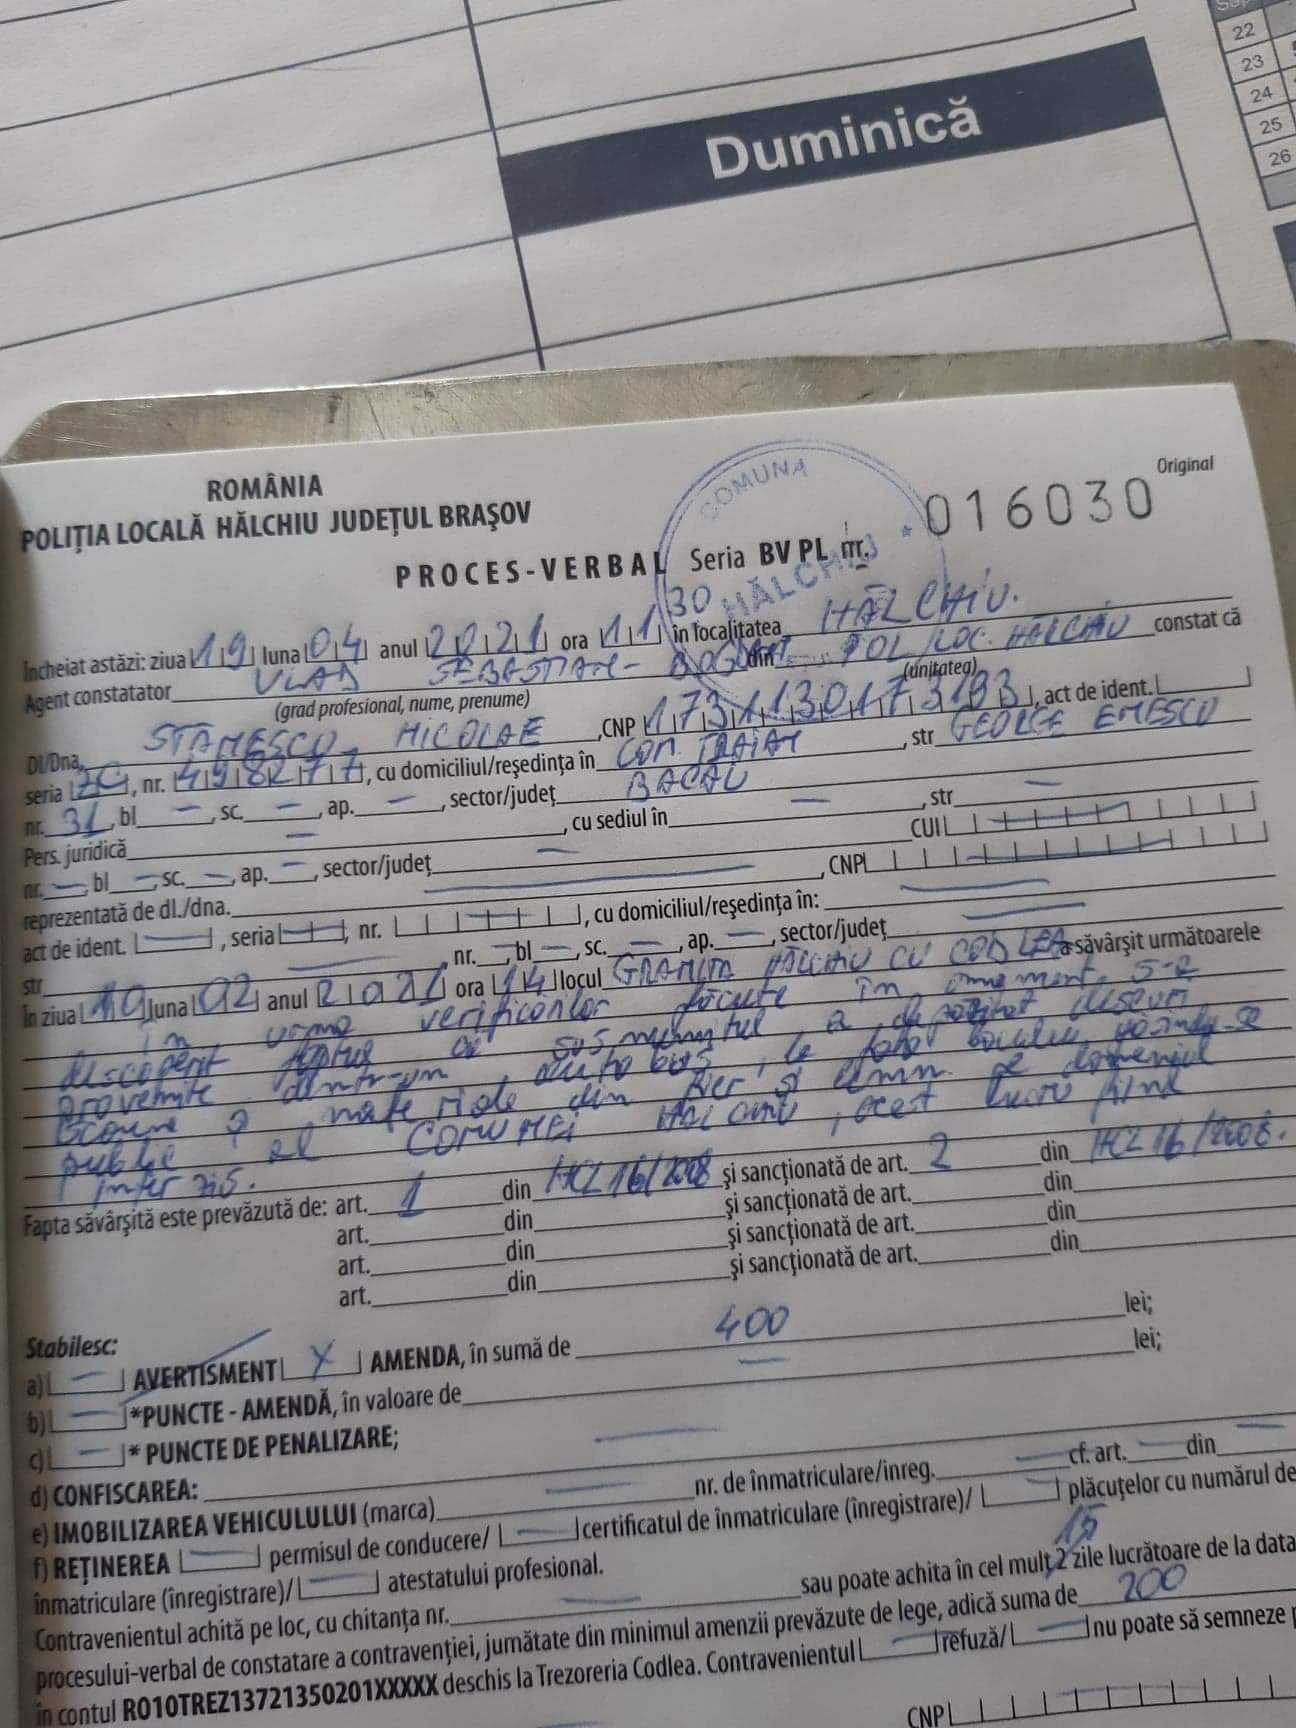 Sep
22
23
24
25
26
Duminică
Original
ROMÂNIA
POLIȚIA LOCALĂ HĂLCHIU JUDEȚUL BRAȘOV
COMUNA HĂLCHIU
PROCES-VERBAL Seria BV PL nr. 016030
Încheiat astăzi: ziua 19 luna 04 anul 2021 ora 11 30 în localitatea HĂLCHIU.
Agent constatator VLAD SEBASTIAN-BOGDAN din POL/LOC. HĂLCHIU constat că
(grad profesional, nume, prenume) (unitatea)
Dl/Dna. STANESCU NICOLAE, CNP, act de ident.
seria ZC, nr. 498277, cu domiciliul/reşedinţa în COM. TRAIAN, str GEORGE ENESCU
nr. 31, bl — , sc. — , ap. — , sector/judeţ BACĂU
Pers. juridică — , cu sediul în — , str —
nr. — , bl — , sc. — , ap. — , sector/judeţ — CUI
reprezentată de dl./dna. — , CNP
act de ident. , seria , nr. , cu domiciliul/reşedinţa în: —
str — nr. — , bl — , sc. — , ap. — , sector/judeţ —
În ziua 19 luna 02 anul 2021 ora 14 locul GRANIȚA HĂLCHIU CU CODLEA a săvârşit următoarele
în urma verificărilor făcute în s-a
descoperit faptul că susnumitul a depozitat deseuri
provenite dintr-un autobus, la fața locului găsindu-se
scaune și materiale din fier și lemn pe domeniul
public al COMUNEI HALCHIU, acest lucru fiind
interzis.
Fapta săvârşită este prevăzută de: art. 1 din HCL 16/2008 şi sancţionată de art. 2 din HCL 16/2008.
art. din şi sancţionată de art. din
art. din şi sancţionată de art. din
art. din şi sancţionată de art. din
Stabilesc:
a) — AVERTISMENT X AMENDA, în sumă de 400 lei;
b) — *PUNCTE - AMENDĂ, în valoare de — lei;
c) — * PUNCTE DE PENALIZARE;
d) CONFISCAREA: — cf. art. — din —
e) IMOBILIZAREA VEHICULULUI (marca) — nr. de înmatriculare/inreg. —
f) REŢINEREA — permisul de conducere/ — certificatul de înmatriculare (înregistrare)/ — plăcuţelor cu numărul de
înmatriculare (înregistrare)/ — atestatului profesional.
Contravenientul achită pe loc, cu chitanţa nr. — sau poate achita în cel mult 2 15 zile lucrătoare de la data
procesului-verbal de constatare a contravenţiei, jumătate din minimul amenzii prevăzute de lege, adică suma de 200
în contul RO10TREZ13721350201XXXXX deschis la Trezoreria Codlea. Contravenientul — refuză/ — nu poate să semneze
CNP